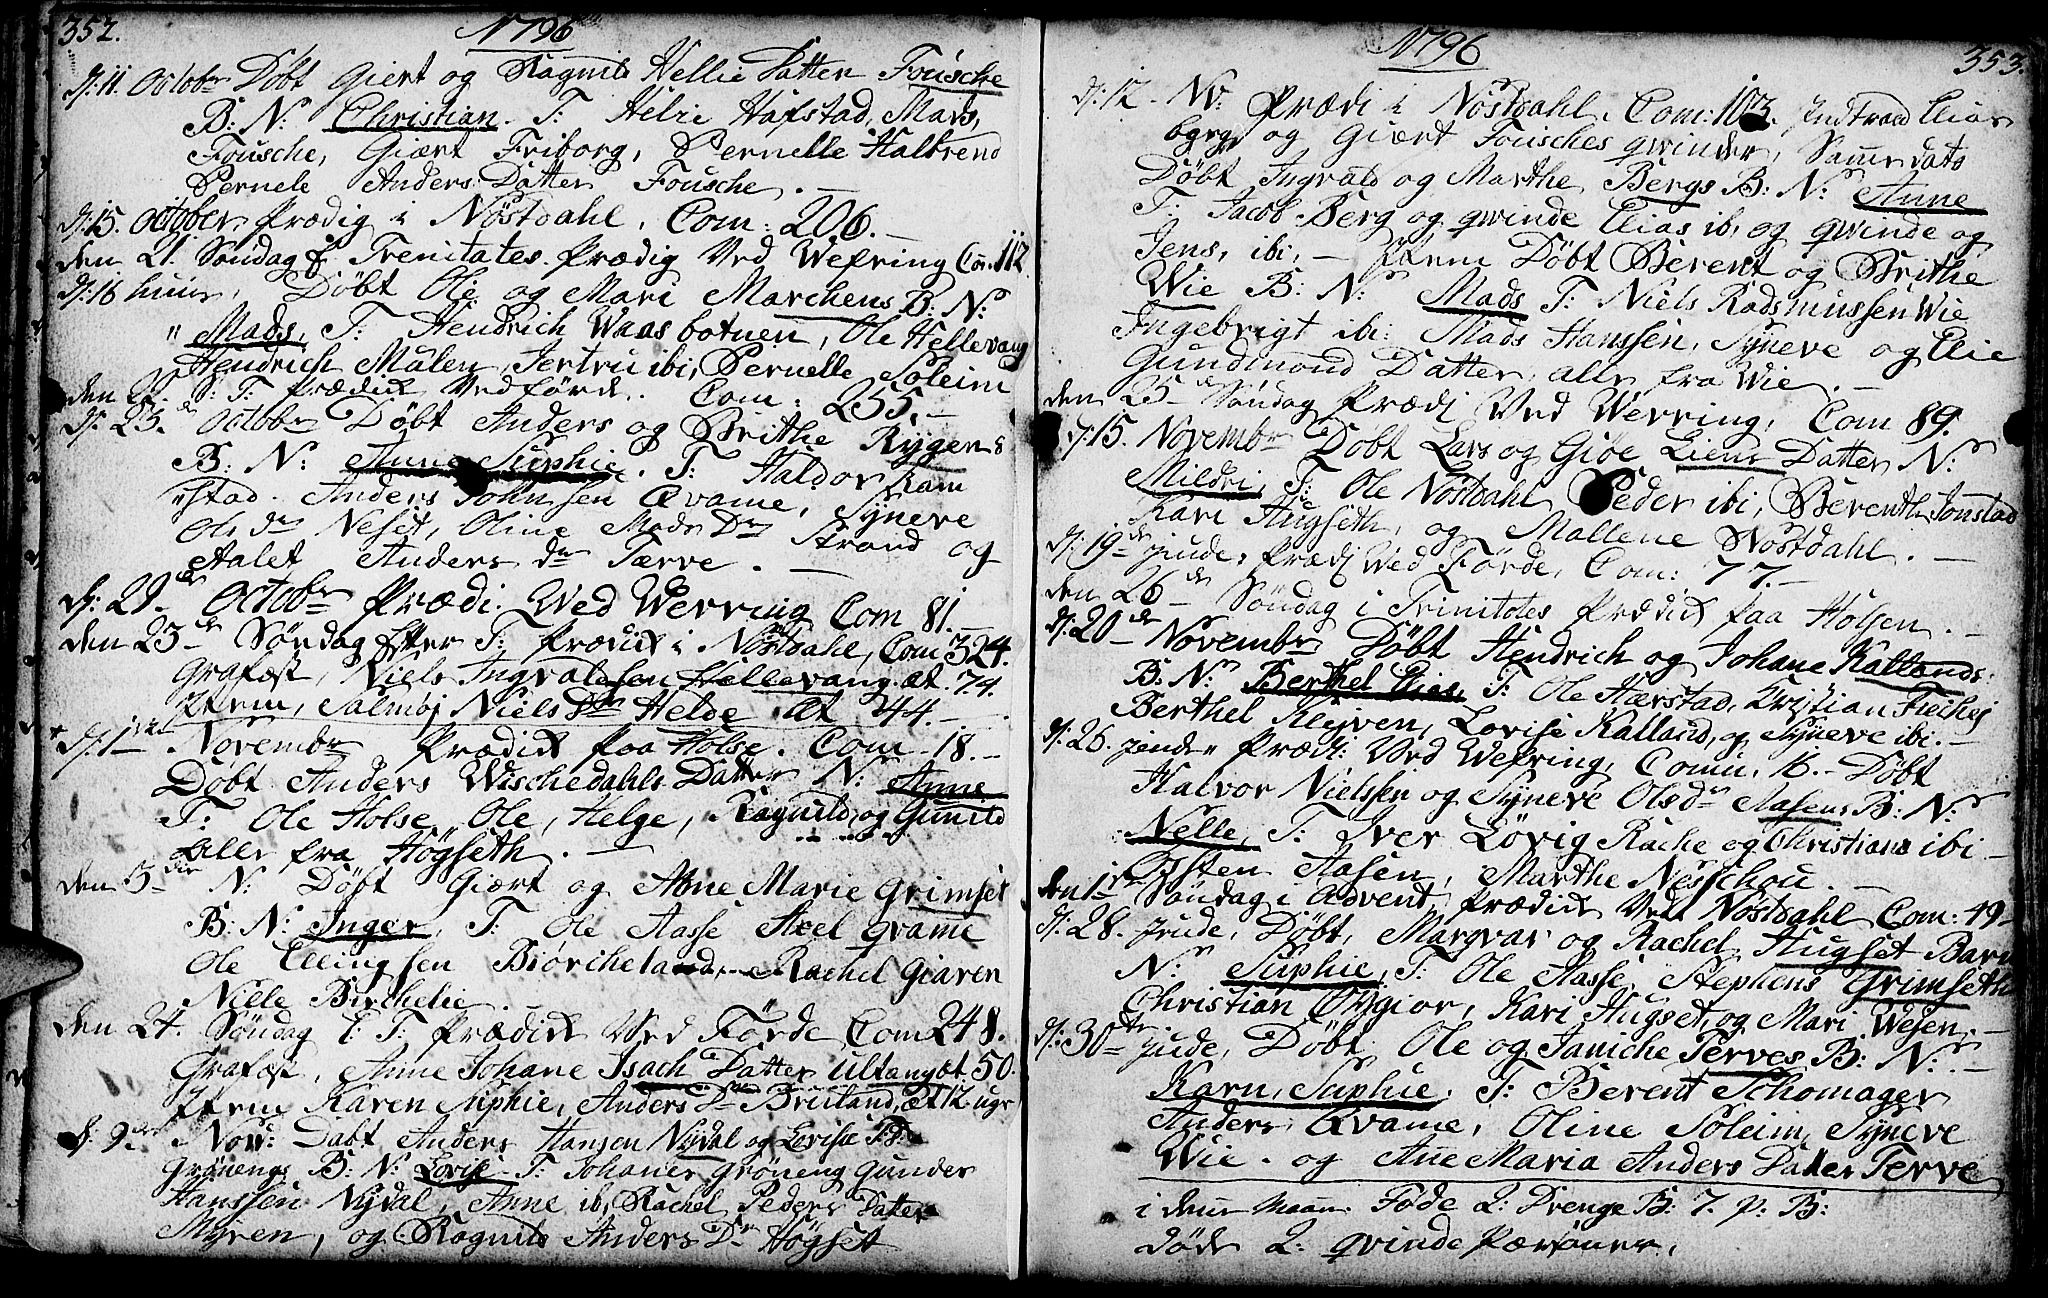 352.
1796
d: 11. Octobr Døbt Giert og Ragnild Hellie Datter Fousche
B: N: Christian. T: Helie Hafstad, Mads,
Fousche, Giært Friborg, Pernelle Halbrend
Pernele Anders Datter Fousche. —
d: 15. October Prædig i Nøstdahl, Com: 206. —
den 21. Søndag f Trenitates Prædig Ved Wefring Com. 112
d: 16 huius, Døbt Ole og Mari Marchens B: N:
Mads, T: Hendrich Waasbotnen, Ole Hellevang
Hendrich Målen, Jertru ibi, Pernelle Soleim
den 22. S: T: Prædick Ved førde. Com: 255. —
d: 23. Octobr Døbt Anders og Brithe Rygens
B: N: Anne Suphie. T: Haldor Ram
stad. Anders Johnsen Qvame, Syneve
Ols dr Neset, Oline Mads Dr Strand og
Aalet Anders dr Tærve. —
d: 29. Octobr Prædi. Ved Werring Com 81. —
den 23 Søndag Efter T: Prædick i Nøstdahl, Com 324.
Grafæst, Niels Ingvaldsen Hellevang, æt. 74.
Item, Salmøj Niels Dr Helde Æt 44. —
d: 1 Novembr Prædick paa Holse. Com. 18. —
Døbt Anders Wischedahls Datter N: Anne
T: Ole Holse, Ole, Helge, Ragnild, og Gunild
alle fra Høgseth. —
den 5 N: Døbt Giært og Ane Marie Grimset
B: N: Inger, T: Ole Aasse Axel Qvame
Ole Ellingsen Biørcheland, Rachel Giaren
Niele Birchelie
den 24. Søndag E: T: Prædick Ved Førde Com 248.
Grafæst, Anne Johane Isach Datter Ultang æt 50.
Item Karen Suphie, Anders Dr Breiland, æt 12 ugr
d: 9 Nov: Døbt Anders Hansen Nydal og Lovise
Grønengs B: N: Lovise T: Johanes Grøneng Gunder
Hanssen Nydal, Anne ib, Rachel Peders Datter
Myren, og Ragnild Anders Dr Høgset
1796
353.
d: 12. Nv: Prædi i Nøstdahl. Com: 103. Indtraad Elias
berg og Giært Fousches qvinder, Samme dato
Døbt Ingvald og Marthe Bergs B: N: Anne
T: Jacob Berg og qvinde Elias ib. og qvinde og
Jens, ibi, — Item Døbt Berent og Brithe
Wie B: N: Mads T: Niels Radsmussen Wie
Ingebrigt ibi: Mads Hanssen, Syneve og Elie
Gundmond Datter, alle fra Wie. —
den 25 Søndag Prædi Ved Werring, Com 89.
d: 15. Novembr Døbt Lars og Giøe Liens Datter N:
Mildri, T: Ole Nøstdahl Peder ibi, Berenth Jonstad
Kari Hugseth, og Mallene Nøstdahl. —
d: 19 jude, Prædi Wed Førde, Com: 77. —
den 26 Søndag i Trinitates Prædick paa Holsen. —
d: 20 Novembr Døbt Hendrich og Johane Kallands
B: N: Berthel Elias, T: Ole Hærstad, Kristian
Berthel Kleyven, Lovise Kalland, og Syneve ibi. —
d: 26. jude Prædi: Ved Wefring, Com. 16. — Døbt
Halvor Nielssen og Syneve Olsdr Aasens B: N:
Nelle, T: Iver Løvig Rache og Christiane ibi —
Østen Aasen, Marthe Nesschou. —
den 1 Søndag i Advent, Prædick Ved Nøstdahl Com: 49 —
d: 28. jude, Døbt, Margvar og Rachel Hugset Barn
N: Suphie, T: Ole Aasse, Stephens Grimseth
Christian Øygior, Kari Hugset, og Mari Wefen. —
d: 30 jude, Døbt Ole og Janiche Terves B: N: —
Karn Suphie. T: Berent Schomager
Anders Qvame, Oline Soleim, Syneve
Wie. og Ane Maria Anders Datter Terve
i denne Maan. Føde 2: Drenge B: 7. P: B:
døde 2: qvinde Personer.